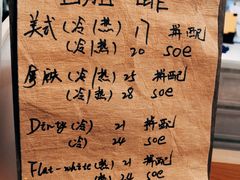 美式（冷/热）17 拼配
（冷/热）20 SOE
（冷/热）25 拼配
（冷/热）28 SOE
Dirty（冷）21 拼配
24 SOE
Flat-white（热）21 拼配
24 SOE